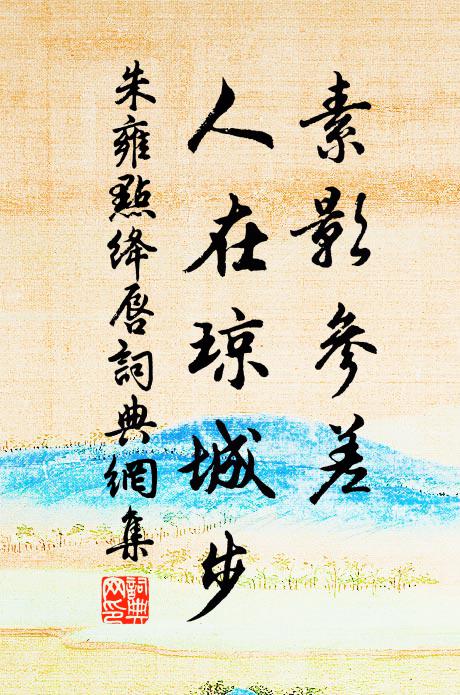 素影參差
人在琼城步
朱雍點绛唇詞典網集
詞典網印